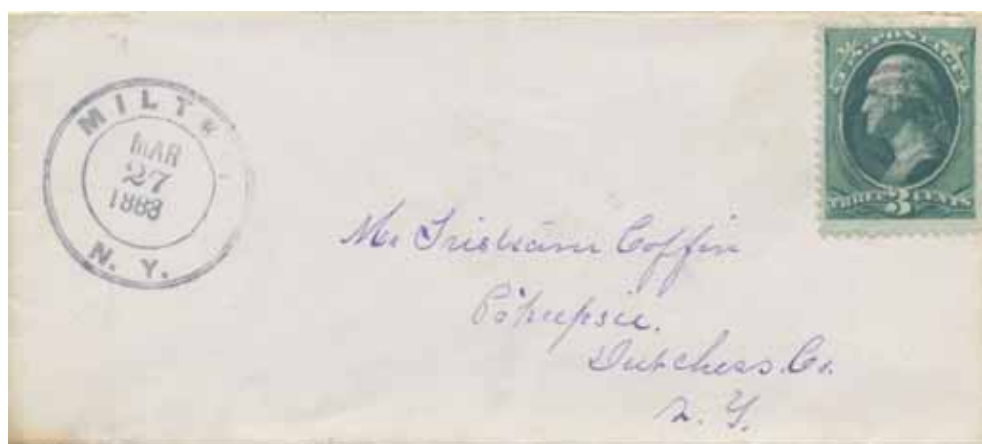 MILT
MAR
27
1883
N. Y.
U.S. POSTAGE
THREE 3 CENTS
Mr Tristram Coffin
Po'kepsie.
Dutchess. Co.
N. Y.